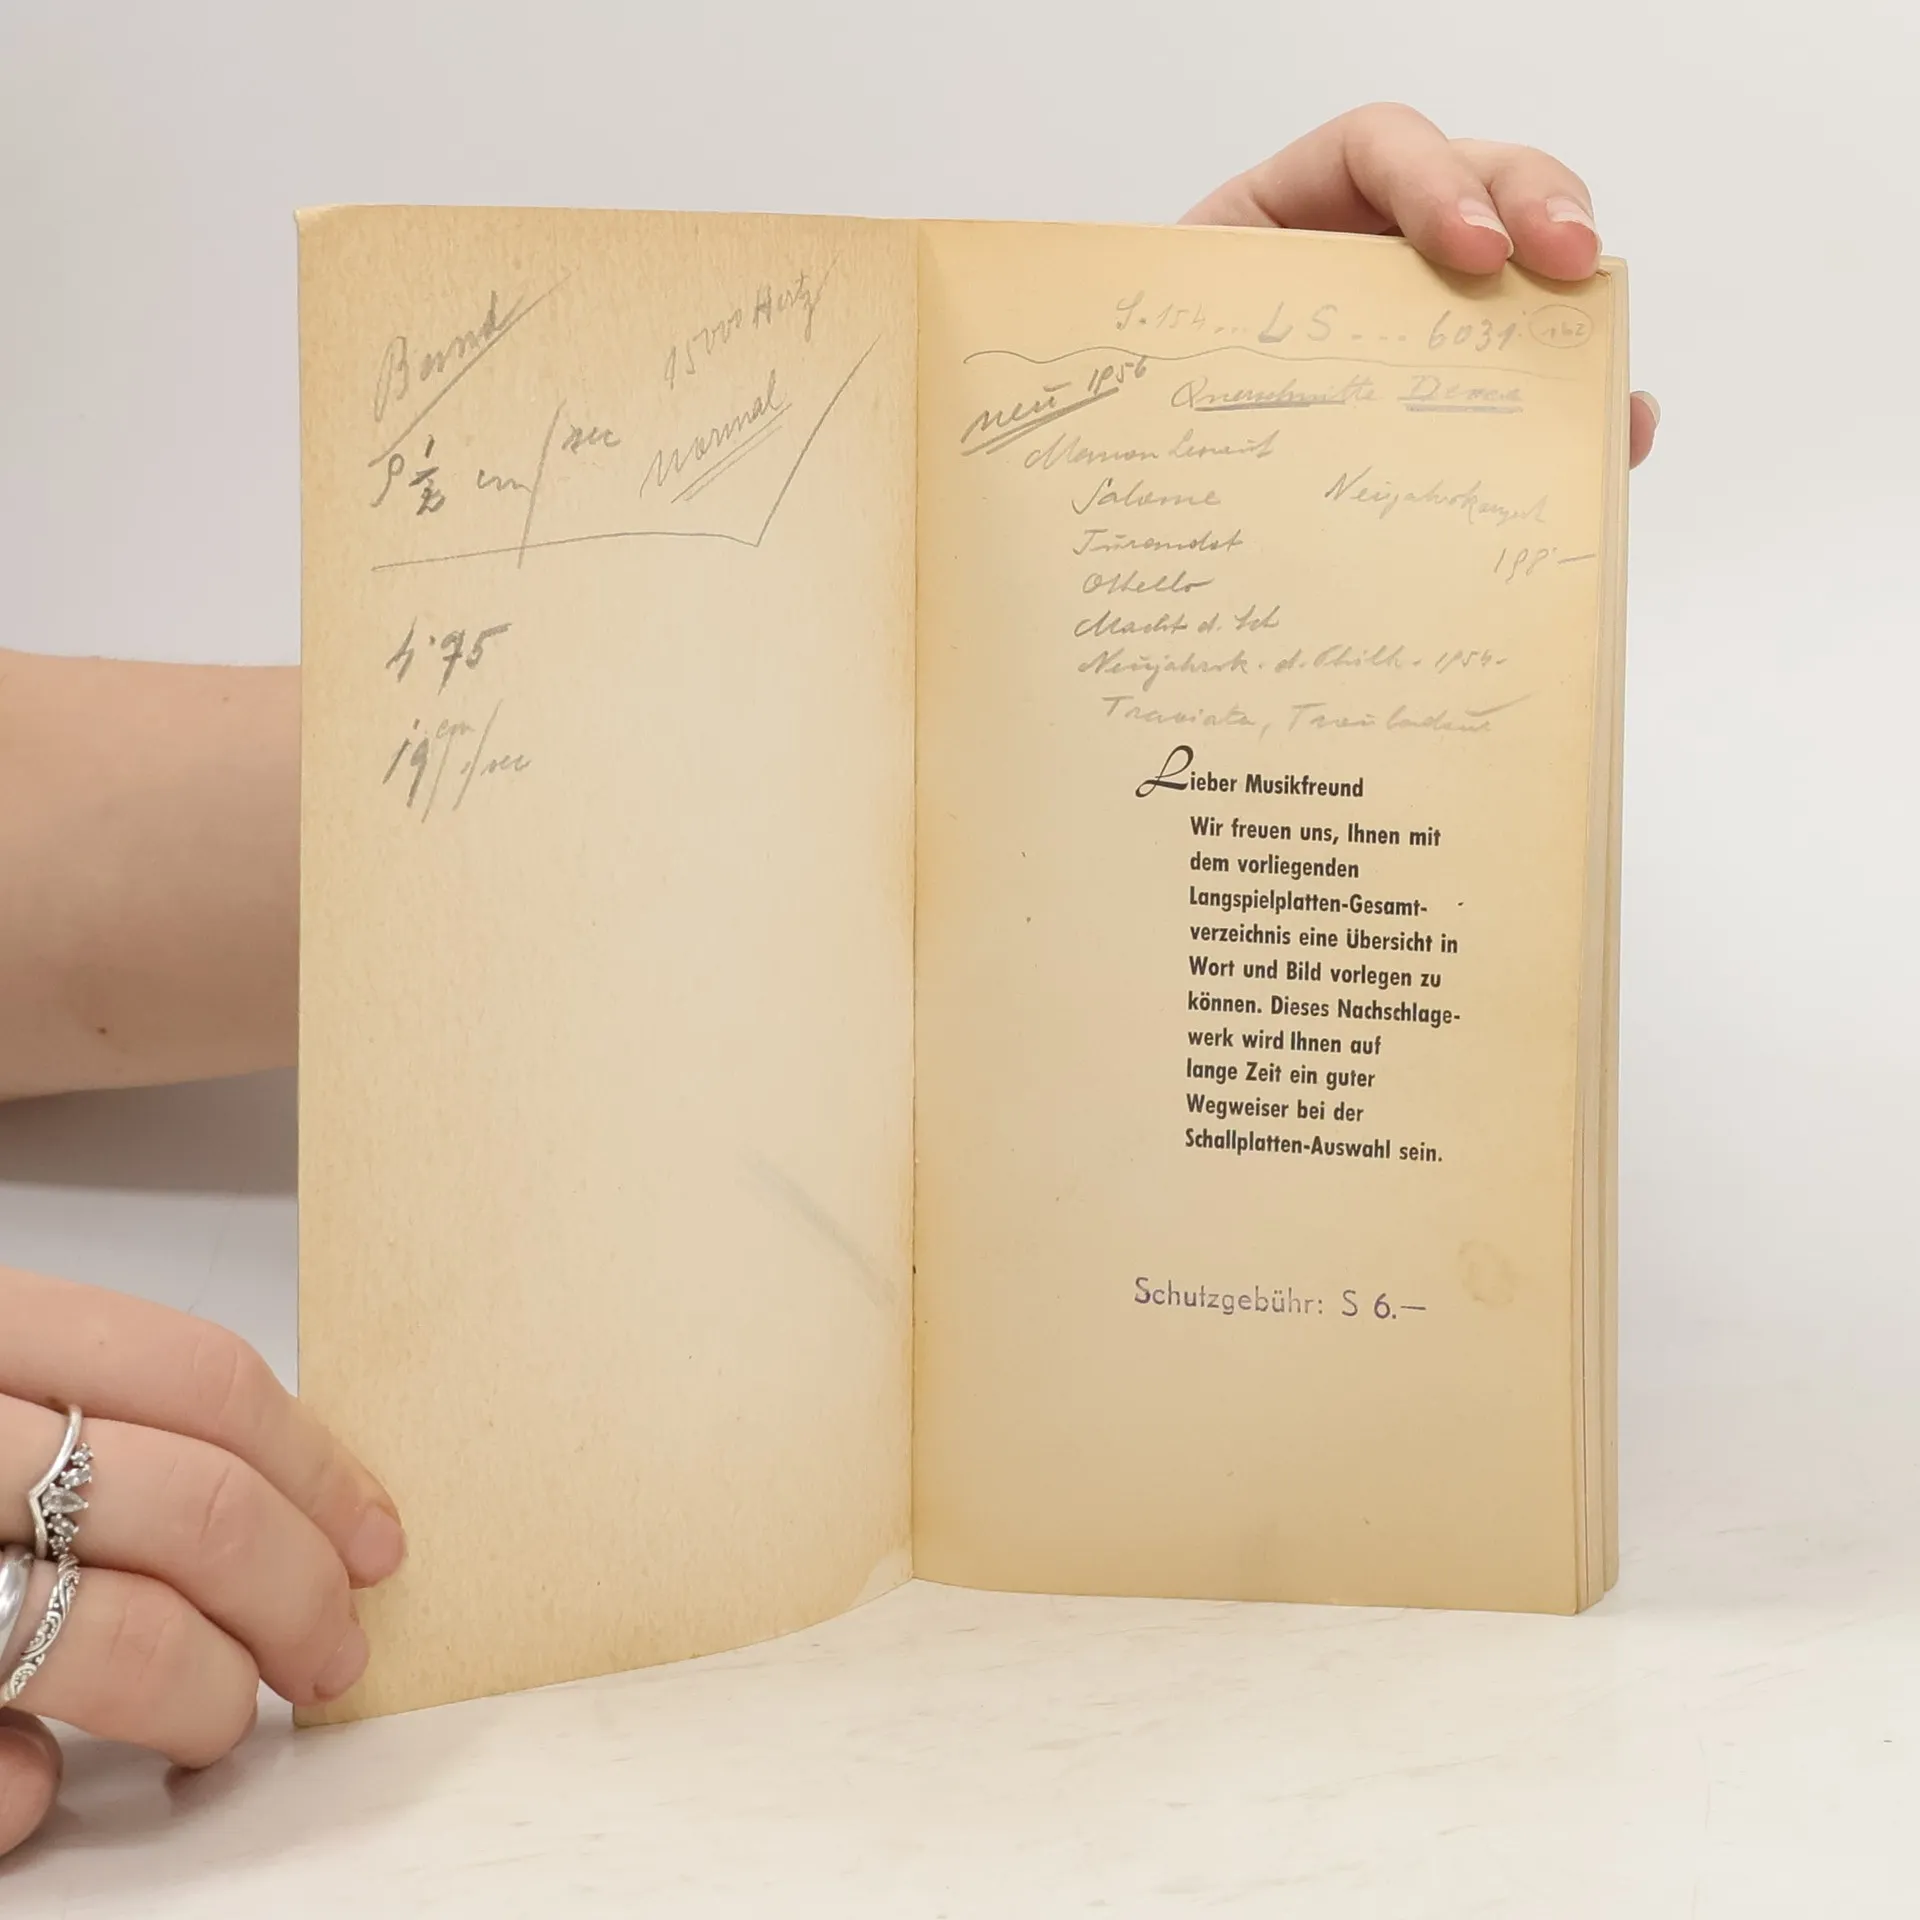 Band
15000 Hertz
9 1/2 cm/sec
normal
4·75
19 cm/sec
S. 154 ... LS ... 6031
neu 1956 Querschnitte Decca
Manon Lescaut
Salome
Neujahrskonzert
Turandot
198·—
Othello
Macht d. Sch
Neujahrsk. d. Philh. 1954.
Traviata, Troubadour
Lieber Musikfreund
Wir freuen uns, Ihnen mit
dem vorliegenden
Langspielplatten-Gesamt-
verzeichnis eine Übersicht in
Wort und Bild vorlegen zu
können. Dieses Nachschlage-
werk wird Ihnen auf
lange Zeit ein guter
Wegweiser bei der
Schallplatten-Auswahl sein.
Schutzgebühr: S 6.—